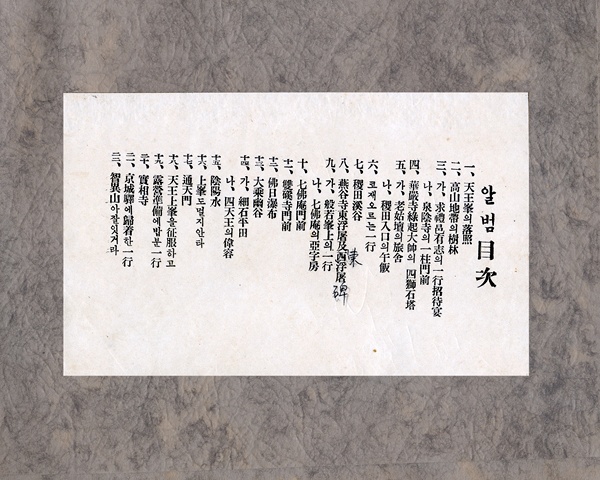 알범目次
一、天王峯의落照
二、高山地帶의樹林
三、가、求禮邑有志의一行招待宴
나、泉隱寺의一柱門前
四、華嚴寺緣起大師의四獅石塔
五、가、老姑壇의旅舍
나、稷田入口의午飯
六、코재오르는一行
七、稷田溪谷
八、燕谷寺東浮屠及西浮屠
東
碑
九、가、般若峯上의一行
나、七佛庵의亞字房
十、七佛庵門前
十一、雙磎寺門前
十二、佛日瀑布
十三、大乘幽谷
十四、가、細石平田
나、四天王의偉容
十五、陰陽水
十六、上峯도멀지안타
十七、通天門
十八、天王上峯을征服하고
十九、露營準備에밥분一行
二十、實相寺
二一、京城驛에歸着한一行
二二、智異山아잘잇거라